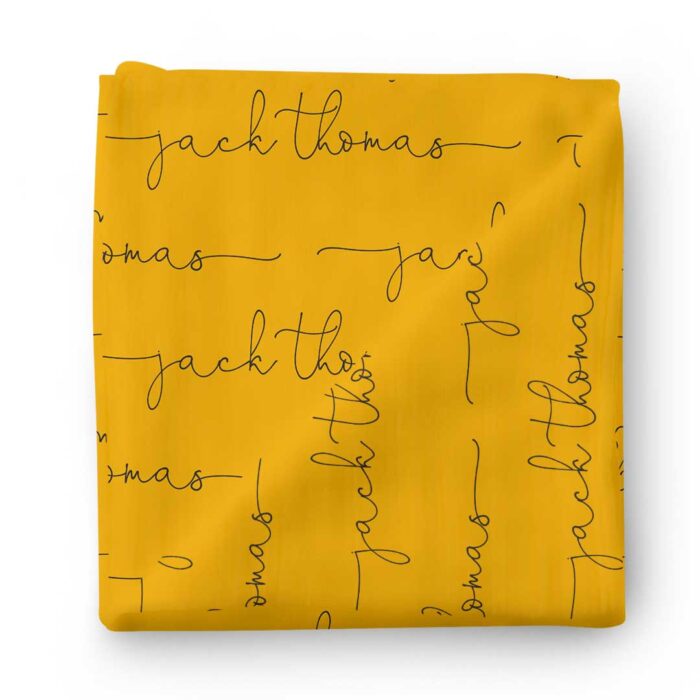 jack thomas
omas jac
jac
jack thomas
jack tho
jack tho
omas
omas
omas